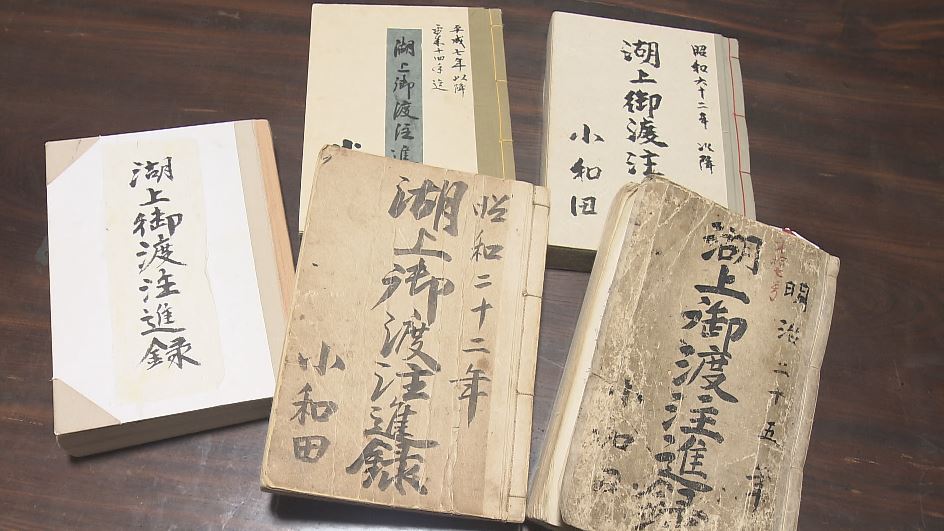 平成七年以降
湖上御渡注進
昭和六十二年以降
湖上御渡注
小和田
湖上御渡注進録
昭和二十二年
湖上御渡注進録
小和田
明治二十五年
湖上御渡注進録
小和田